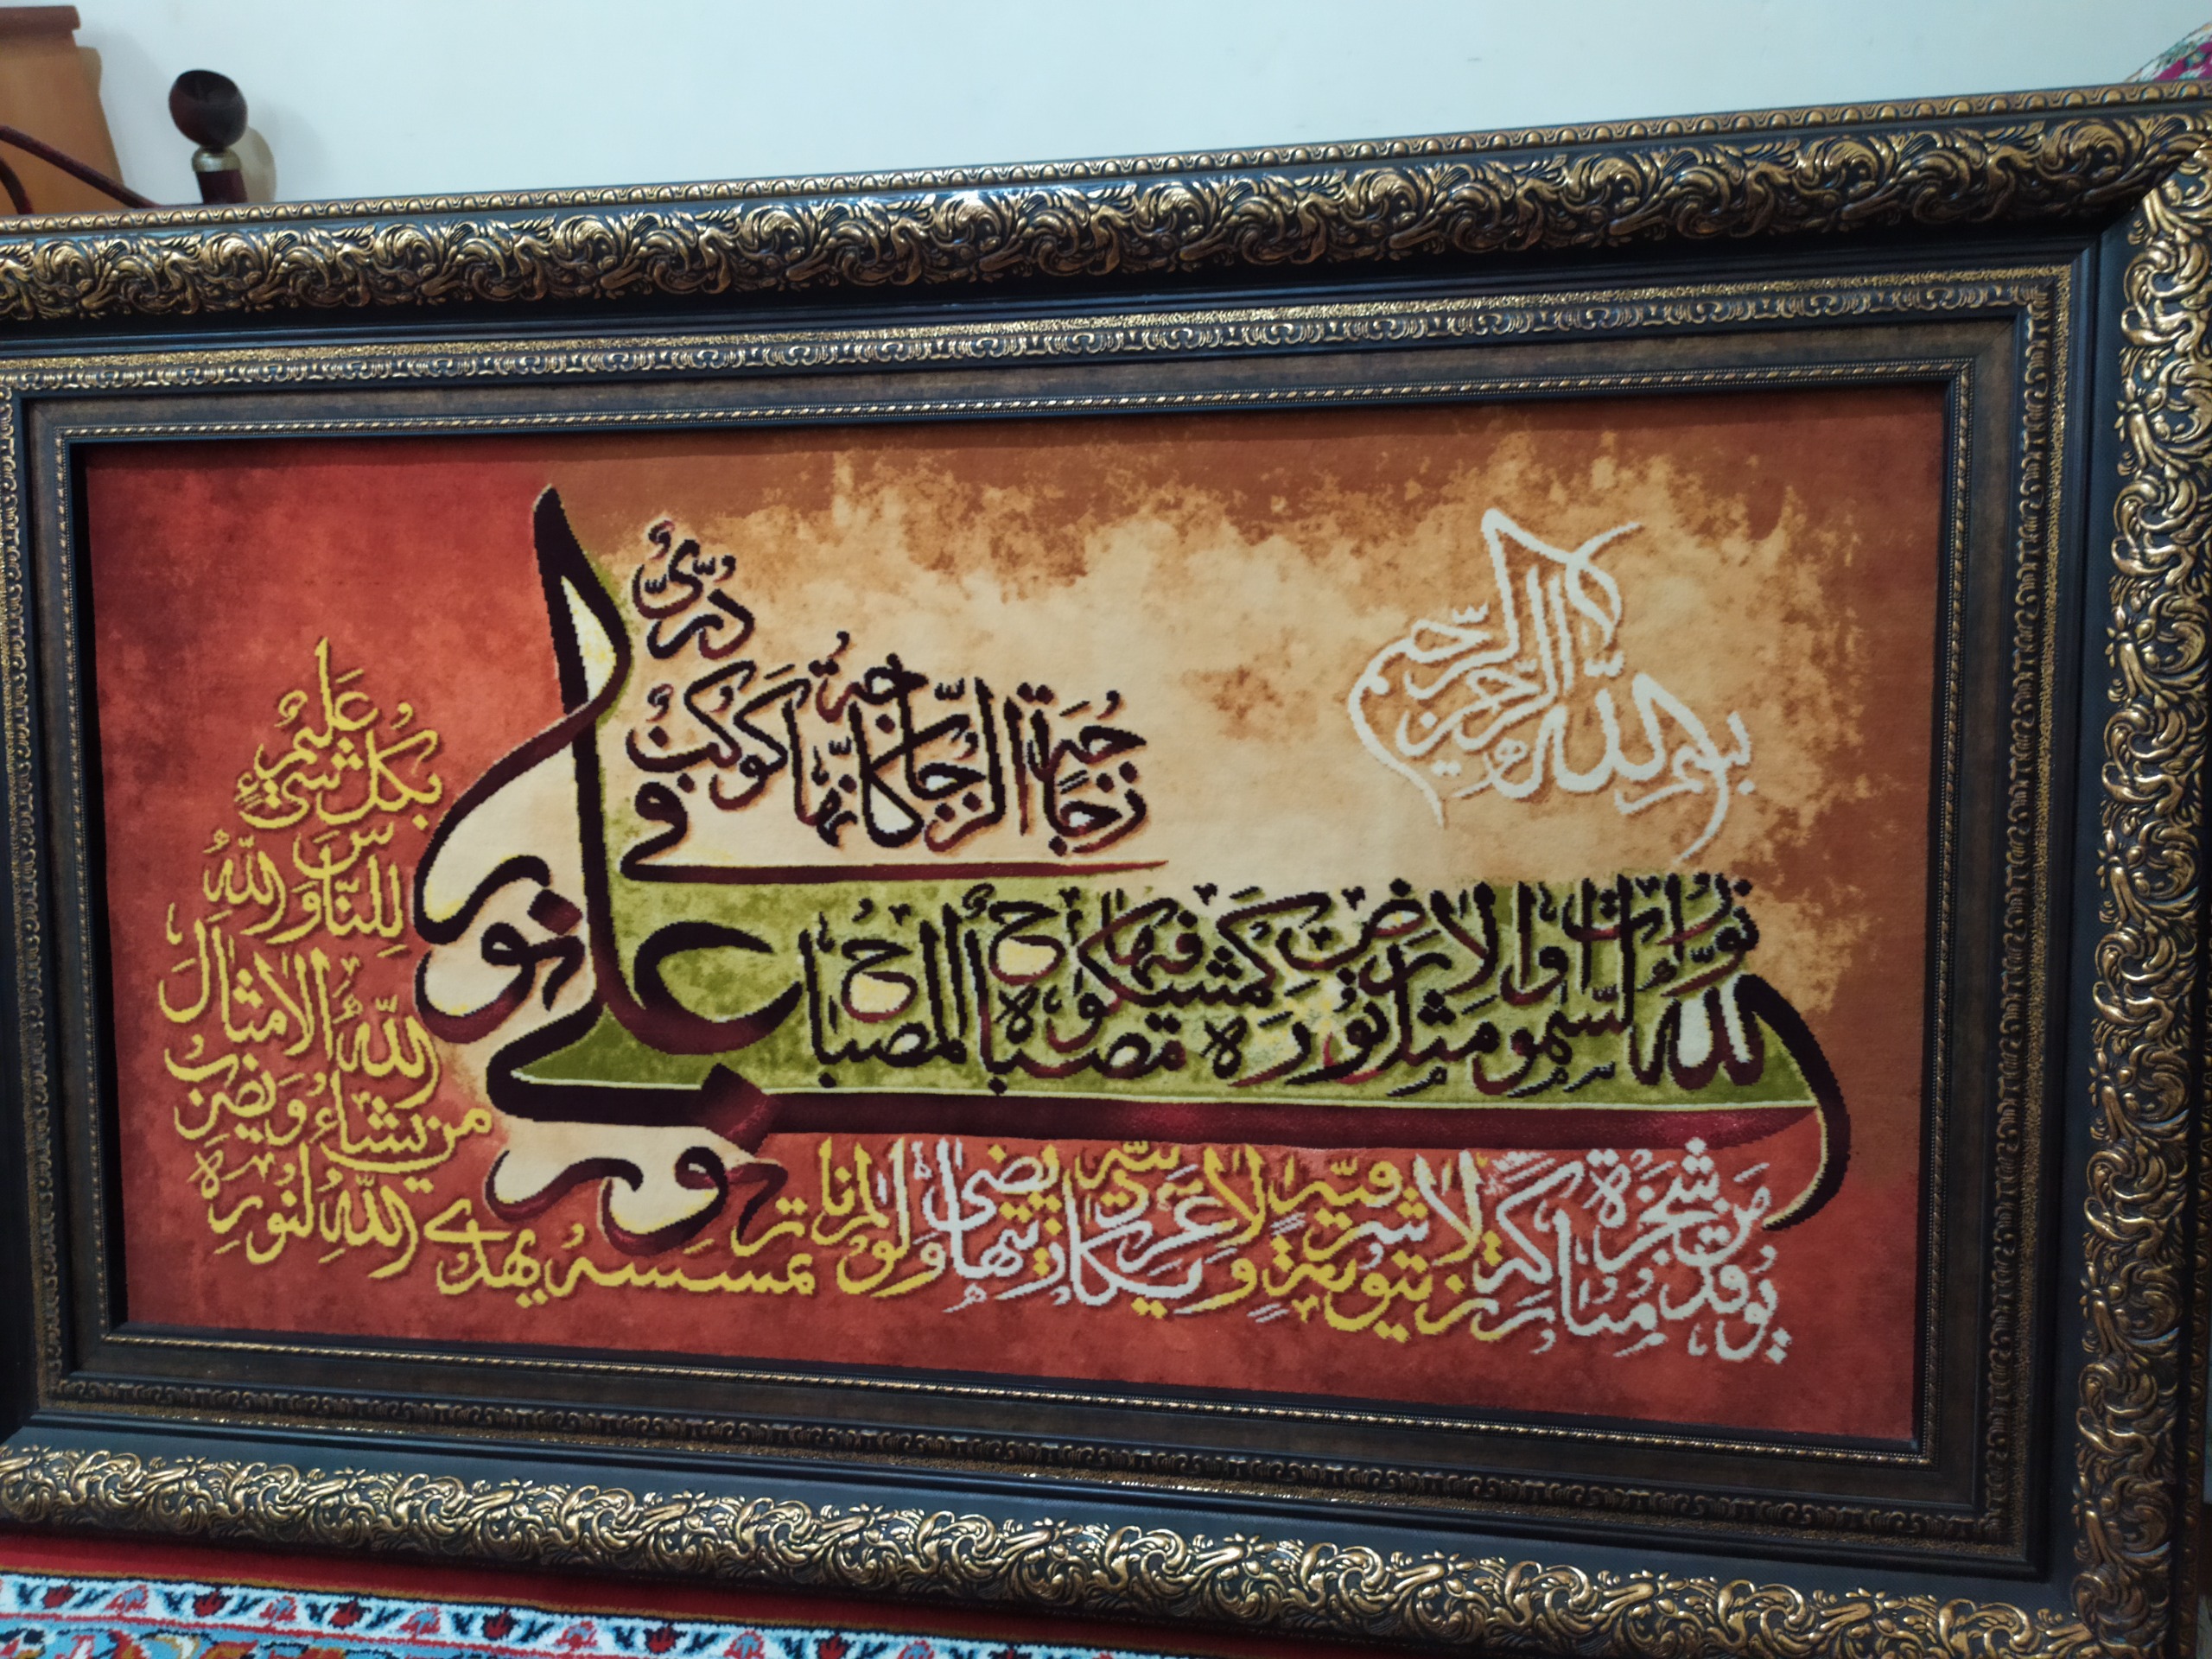 بسم الله الرحمن الرحيم
الله نور السموات والارض مثل نوره كمشكوة فيها مصباح المصباح
في زجاجة الزجاجة كانها كوكب دري
يوقد من شجرة مباركة زيتونة لا شرقية ولا غربية يكاد زيتها يضئ ولو لم تمسسه نار
نور على نور
يهدي الله لنوره
من يشاء ويضرب
الله الامثال
للناس والله
بكل شيء
عليم